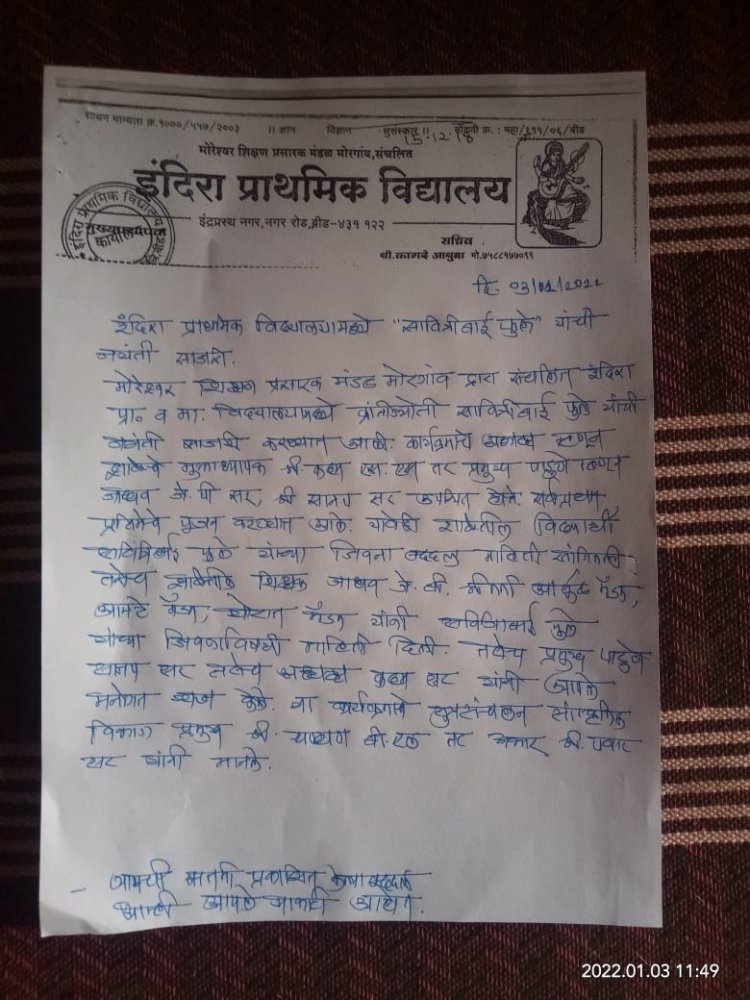 शासन मान्यता क्र.१०००/५५७/२००३ ॥ ज्ञान विज्ञान सुसंस्कार ॥ नोंदणी क्र. : महा/६११/०६/बीड
15.12.18
मोरेश्वर शिक्षण प्रसारक मंडळ मोरगांव,संचलित
इंदिरा प्राथमिक विद्यालय
इंद्रप्रस्थ नगर,नगर रोड,बीड-४३१ १२२
इंदिरा प्राथमिक विद्यालय
मुख्याध्यापक
कार्यालय
सचिव
श्री.कागदे आश्रुबा मो.७५८८१७७०९९
दि. ०3/०1/२०२२
इंदिरा प्राथमिक विद्यालयामध्ये "सावित्रीबाई फुले" यांची
जयंती साजरी.
मोरेश्वर शिक्षण प्रसारक मंडळ मोरगांव द्वारा संचलित इंदिरा
प्रा. व मा. विद्यालयामध्ये क्रांतीज्योती सावित्रीबाई फुले यांची
जयंती साजरी करण्यात आली. कार्यक्रमाचे अध्यक्ष म्हणून
शाळेचे मुख्याध्यापक श्री. कदम एस. एम तर प्रमुख पाहुणे म्हणून
जाधव जे. पी सर, श्री सानप सर उपस्थित होते. सर्वप्रथम
प्रतिमेचे पूजन करण्यात आले. यावेळी शाळेतील विद्यार्थी
सावित्रिबाई फुले यांच्या जिवना बद्दल माहिती सांगितली
तसेच शाळेतील शिक्षक जाधव जे. बी. श्रीमती मॅडम,
आमटे मॅडम, थोरात मॅडम यांनी सावित्रिबाई फुले
यांच्या जिवनाविषयी माहिती दिली. तसेच प्रमुख पाहुणे
सानप सर तसेच अध्यक्ष कदम सर यांनी आपले
मनोगत व्यक्त केले. या कार्यक्रमाचे सुत्रसंचलन सांस्कृतिक
विभाग प्रमुख श्री. चव्हाण बी. एल तर आभार श्री. पवार
सर यांनी मानले.
- आमची बातमी प्रकाशित केल्याबद्दल
आम्ही आपले आभारी आहोत.
2022.01.03 11:49